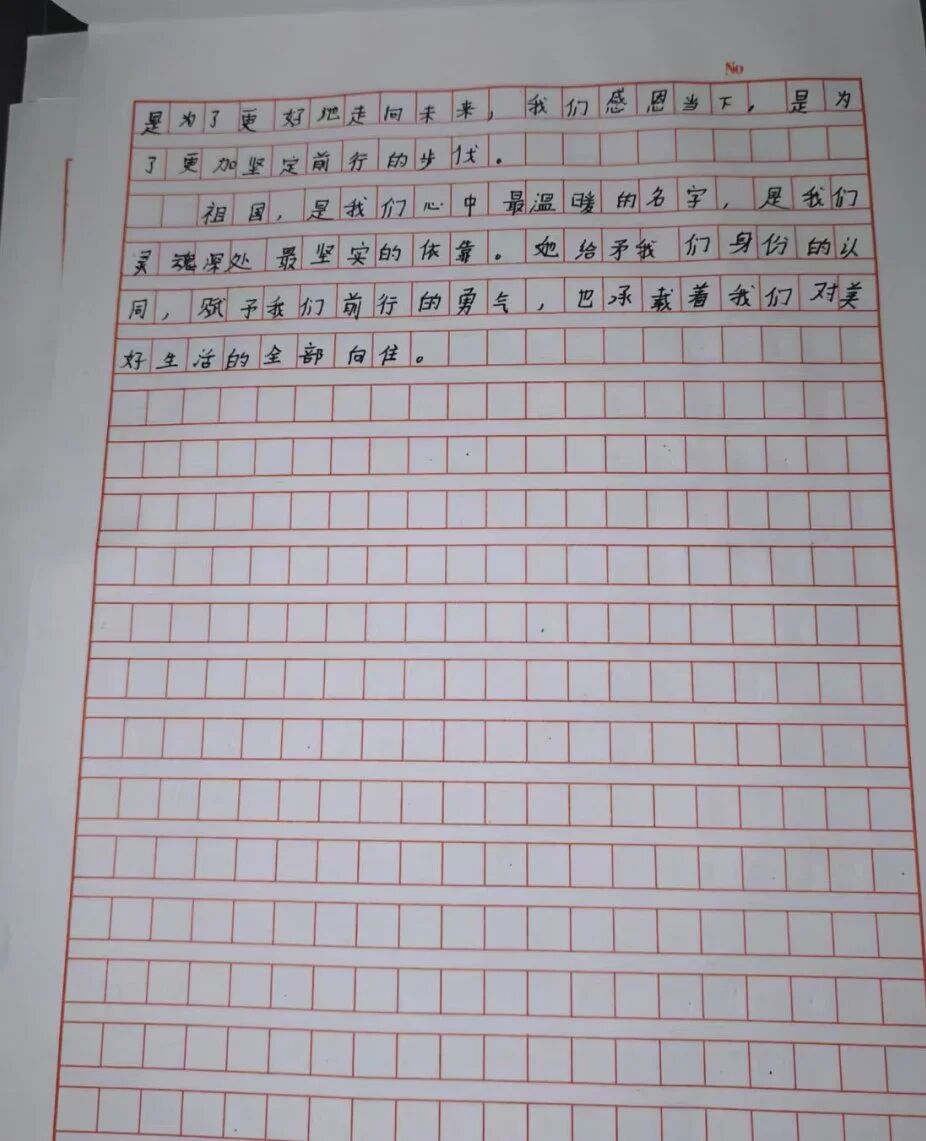 No
是为了更好地走向未来，我们感恩当下，是为
了更加坚定前行的步伐。
祖国，是我们心中最温暖的名字，是我们
灵魂深处最坚实的依靠。她给予我们身份的认
同，赋予我们前行的勇气，也承载着我们对美
好生活的全部向往。